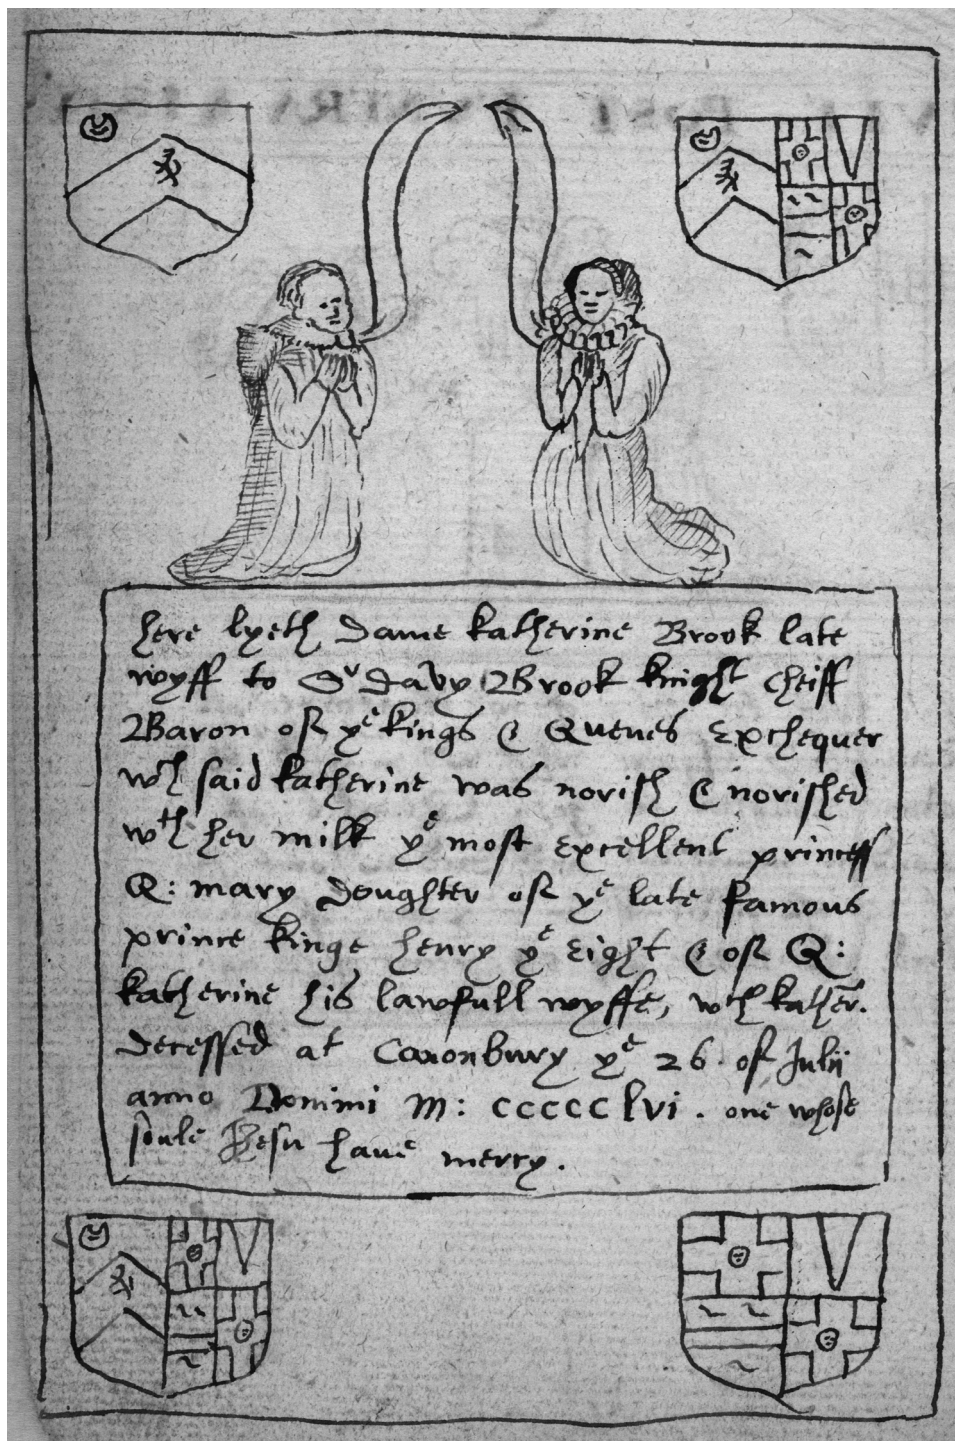 here lyeth Dame katherine Brook late
wyff to Sr Davy Brook knight Cheiff
Baron off ye kings & Quenes Exchequer
wch said katherine was norish & norished
wth her milk ye most excellent princess
Q: mary Doughter off ye late famous
prince kinge henry ye eight & off Q:
katherine his lawfull wyffe, wch kather.
Decessed at Canonbury ye 26. of Julii
anno Domini M: CCCCC lvi. one whose
soule Jhesu have mercy.